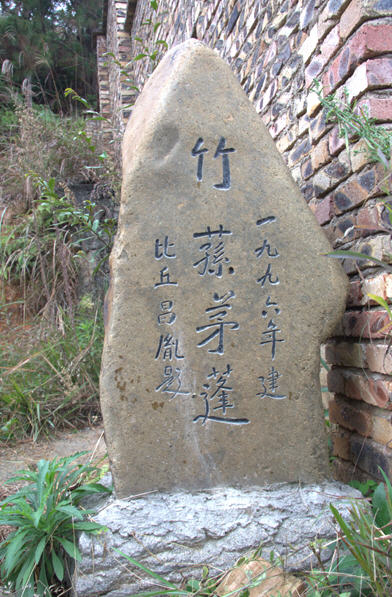 一九九六年建
竹蓀茅蓬
比丘昌胤題